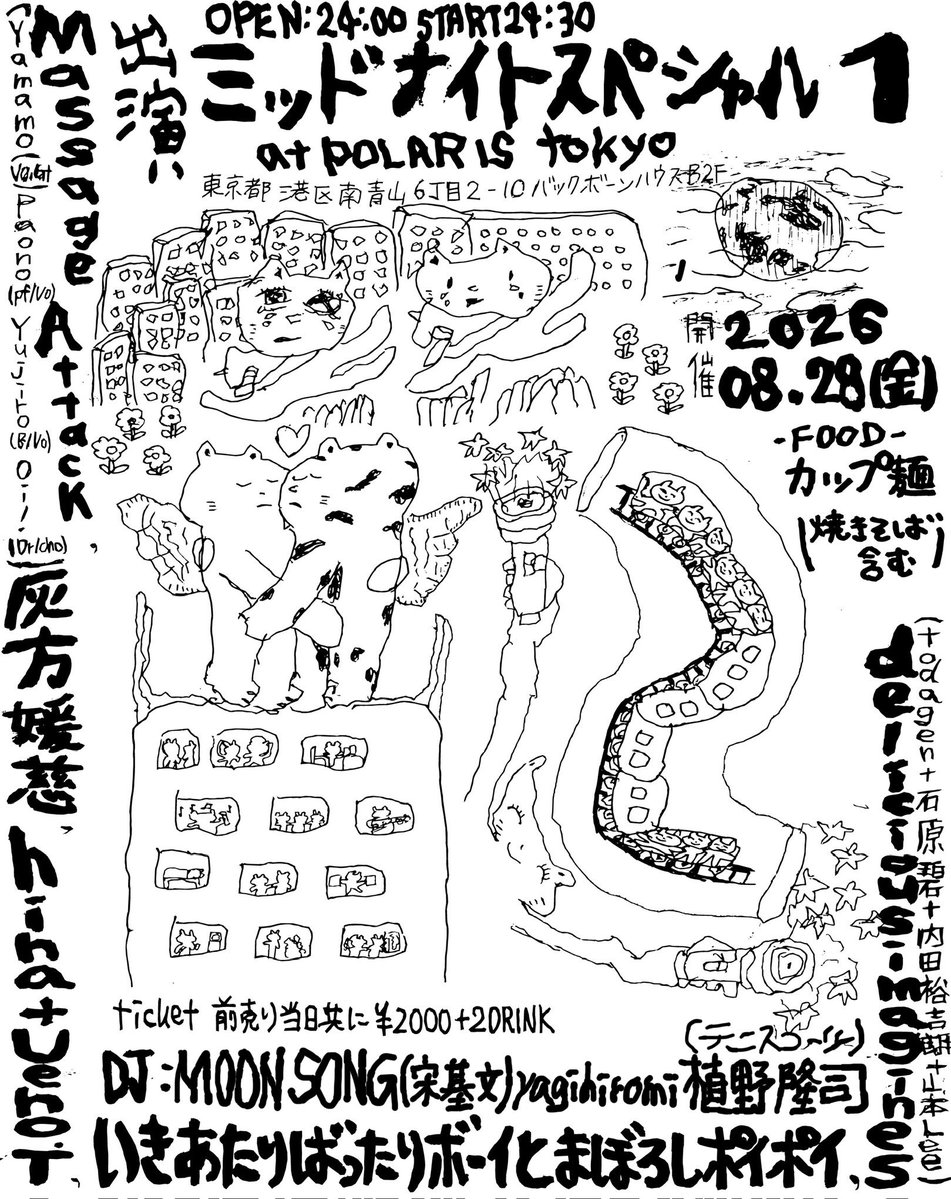 OPEN:24:00 START24:30
ミッドナイトスペシャル 1
at POLARIS tokyo
東京都港区南青山6丁目2-10バックボーンハウスB2F
開催
2026
08.28(金)
-FOOD-
カップ麺
(焼きそば
含む)
出演
Massage Attack,
(Yamamo(Vo/Gt) Paono(pf/Vo) Yujiro(B/Vo) Oi!(Dr/cho))
灰方媛慈,
hina+Ueno.T,
delicious imagines
(tadagen+石原碧+内田裕吉朗+山本Lee)
ticket 前売り当日共に ¥2000+2DRINK
DJ:MOON SONG(宋基文) yagihiromi 植野隆司
(テニスコーツ)
いきあたりばったりボーイとまぼろしポイポイ,